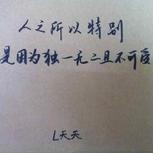 人之所以特别
是因为独一无二且不可
L天天